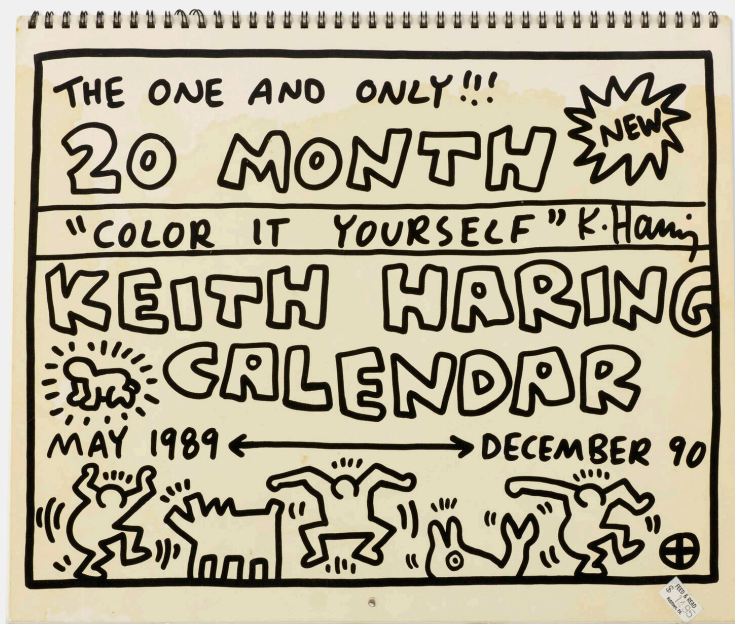 THE ONE AND ONLY!!!
NEW
20 MONTH
"COLOR IT YOURSELF" K. Haring
KEITH HARING
CALENDAR
MAY 1989 DECEMBER 90
FEED & READ
$